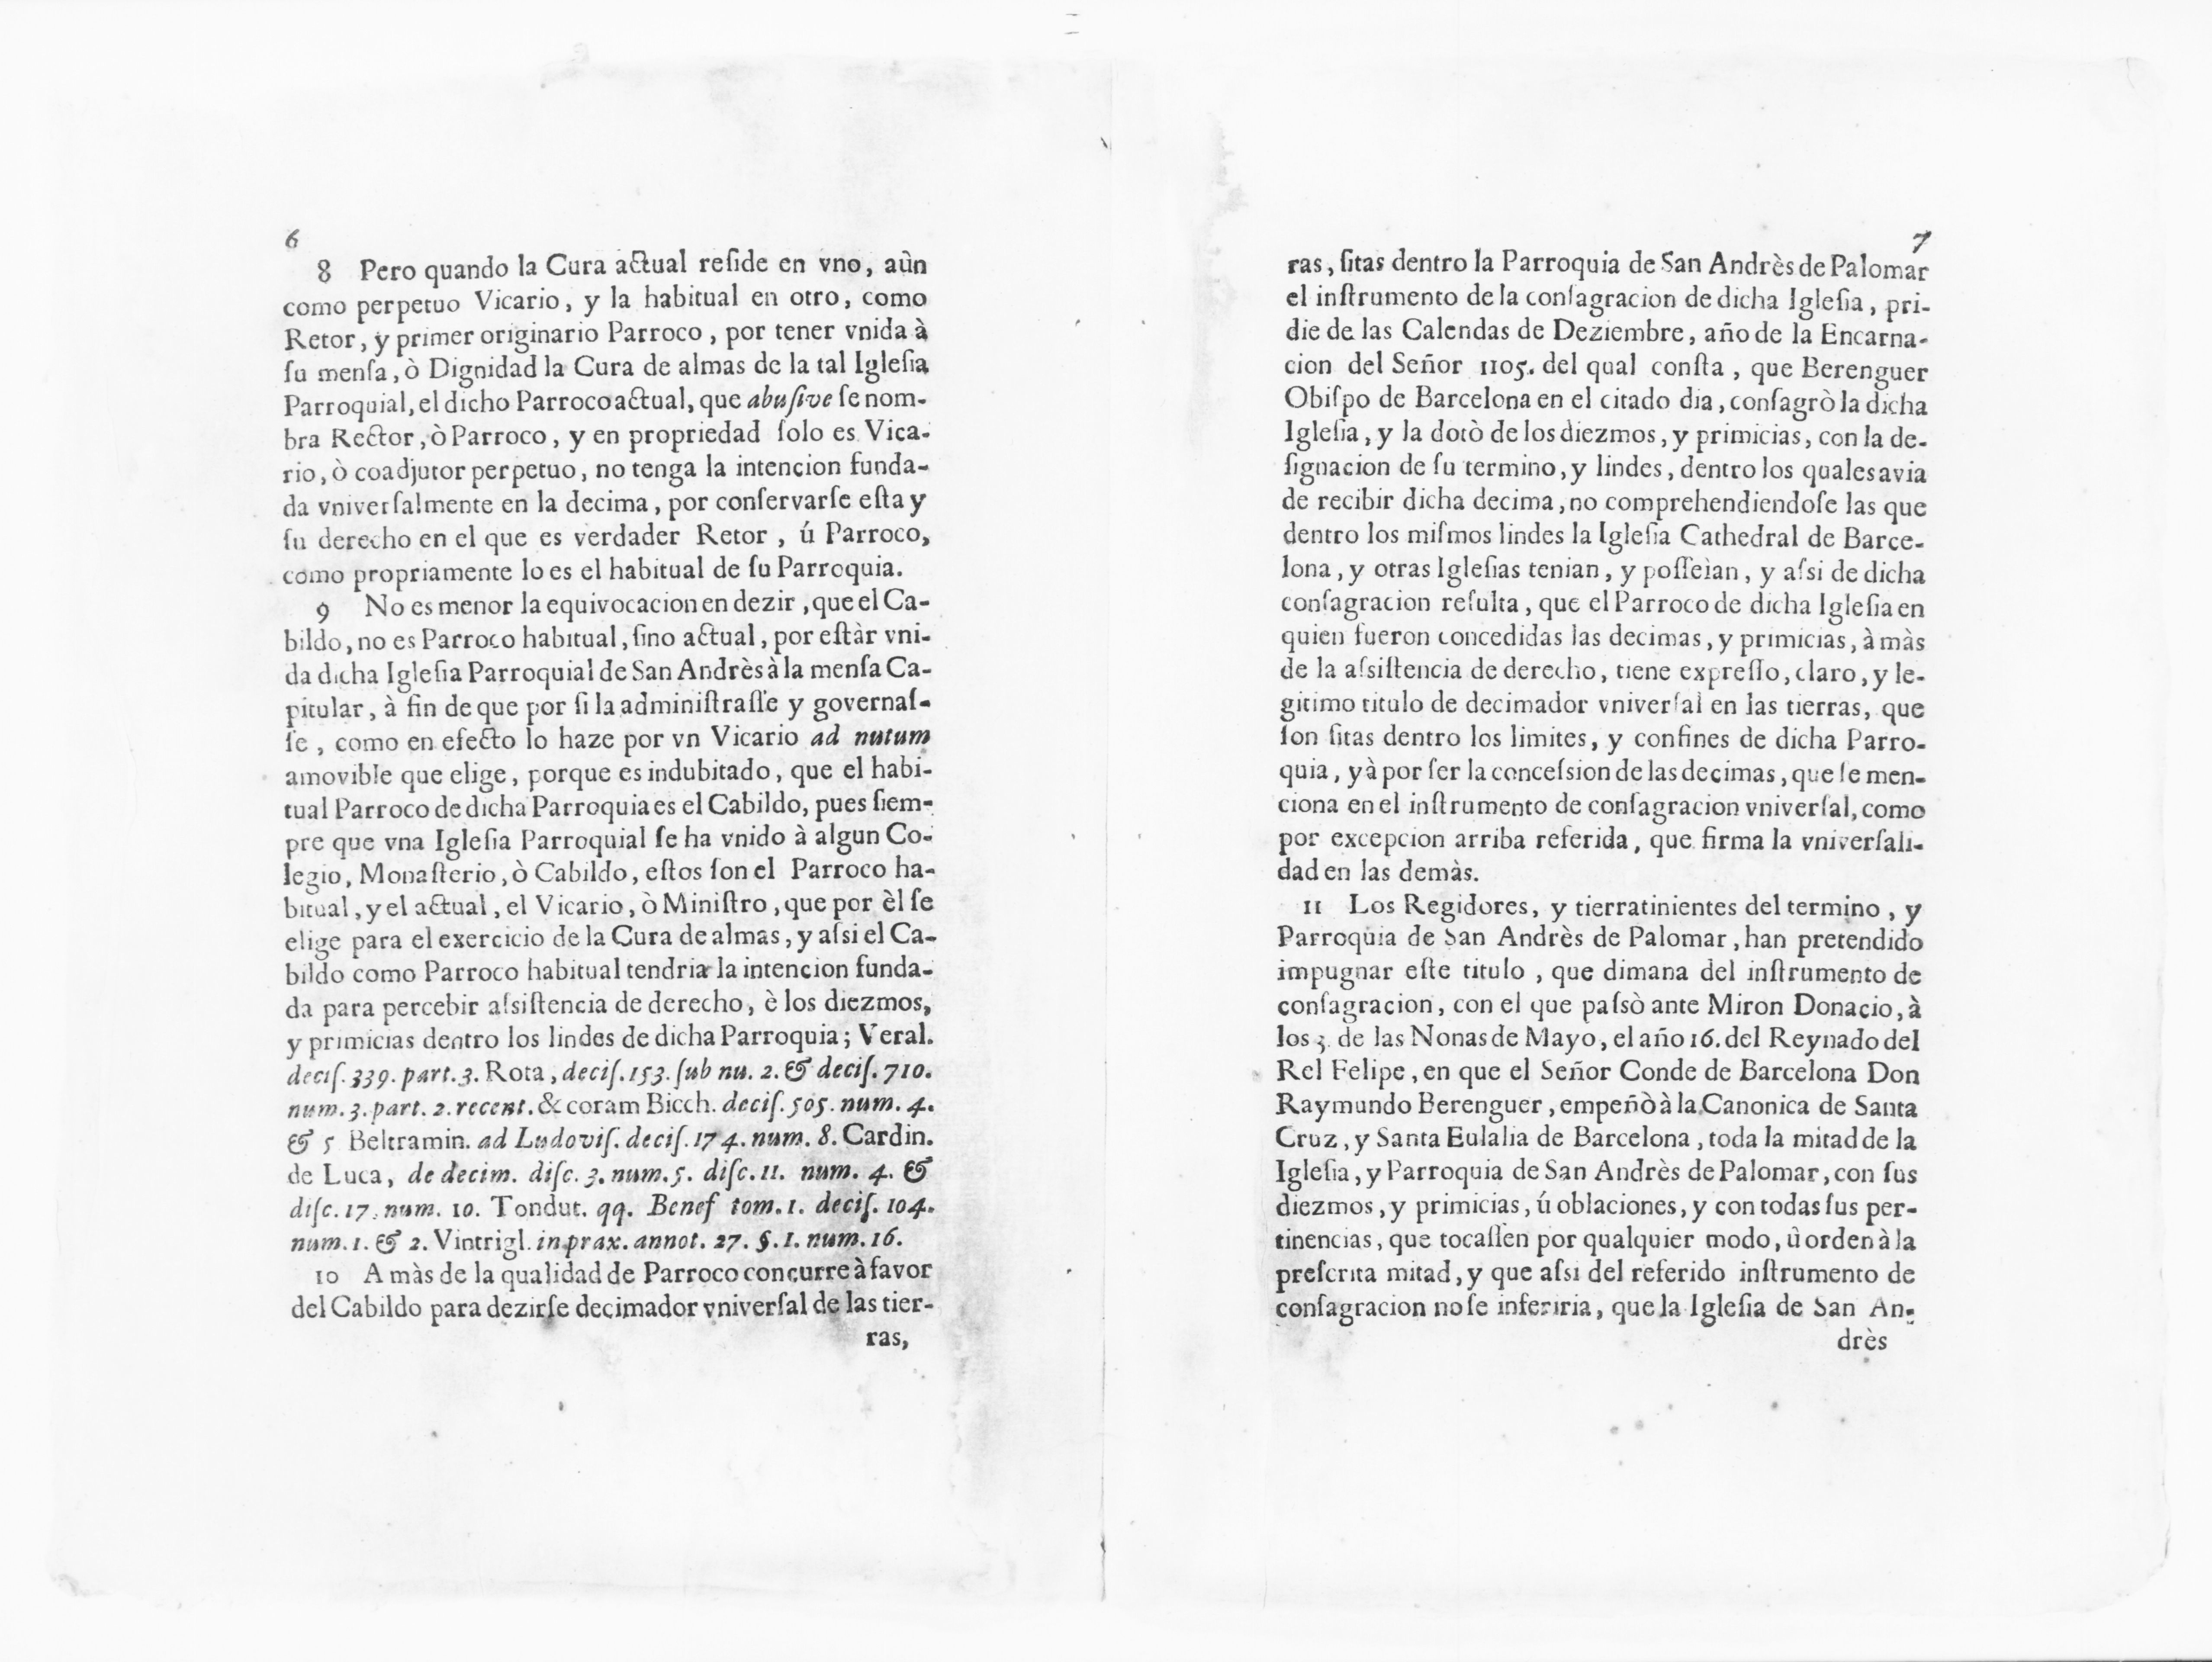 6
8 Pero quando la Cura actual reſide en vno, aùn
como perpetuo Vicario, y la habitual en otro, como
Retor, y primer originario Parroco, por tener vnida à
ſu menſa, ò Dignidad la Cura de almas de la tal Igleſia
Parroquial, el dicho Parroco actual, que abuſive ſe nom-
bra Rector, ò Parroco, y en propriedad ſolo es Vica-
rio, ò coadjutor perpetuo, no tenga la intencion funda-
da vniverſalmente en la decima, por conſervarſe eſta y
ſu derecho en el que es verdader Retor, ú Parroco,
como propriamente lo es el habitual de ſu Parroquia.
9 No es menor la equivocacion en dezir, que el Ca-
bildo, no es Parroco habitual, ſino actual, por eſtàr vni-
da dicha Igleſia Parroquial de San Andrès à la menſa Ca-
pitular, à fin de que por ſi la adminiſtraſſe y governaſ-
ſe, como en efecto lo haze por vn Vicario ad nutum
amovible que elige, porque es indubitado, que el habi-
tual Parroco de dicha Parroquia es el Cabildo, pues ſiem-
pre que vna Igleſia Parroquial ſe ha vnido à algun Co-
legio, Monaſterio, ò Cabildo, eſtos ſon el Parroco ha-
bitual, y el actual, el Vicario, ò Miniſtro, que por èl ſe
elige para el exercicio de la Cura de almas, y aſsi el Ca-
bildo como Parroco habitual tendria la intencion funda-
da para percebir aſsiſtencia de derecho, è los diezmos,
y primicias dentro los lindes de dicha Parroquia; Veral.
deciſ. 339. part. 3. Rota, deciſ. 153. ſub nu. 2. & deciſ. 710.
num. 3. part. 2. recent. & coram Bicch. deciſ. 505. num. 4.
& 5 Beltramin. ad Ludoviſ. deciſ. 174. num. 8. Cardin.
de Luca, de decim. diſc. 3. num. 5. diſc. 11. num. 4. &
diſc. 17. num. 10. Tondut. qq. Benef tom. 1. deciſ. 104.
num. 1. & 2. Vintrigl. in prax. annot. 27. §. 1. num. 16.
10 A màs de la qualidad de Parroco concurre à favor
del Cabildo para dezirſe decimador vniverſal de las tier-
ras,
7
ras, ſitas dentro la Parroquia de San Andrès de Palomar
el inſtrumento de la conſagracion de dicha Igleſia, pri-
die de las Calendas de Deziembre, año de la Encarna-
cion del Señor 1105. del qual conſta, que Berenguer
Obiſpo de Barcelona en el citado dia, conſagrò la dicha
Igleſia, y la dotò de los diezmos, y primicias, con la de-
ſignacion de ſu termino, y lindes, dentro los quales avia
de recibir dicha decima, no comprehendiendoſe las que
dentro los miſmos lindes la Igleſia Cathedral de Barce-
lona, y otras Igleſias tenian, y poſſeìan, y aſsi de dicha
conſagracion reſulta, que el Parroco de dicha Igleſia en
quien fueron concedidas las decimas, y primicias, à màs
de la aſsiſtencia de derecho, tiene expreſſo, claro, y le-
gitimo titulo de decimador vniverſal en las tierras, que
ſon ſitas dentro los limites, y confines de dicha Parro-
quia, yà por ſer la conceſsion de las decimas, que ſe men-
ciona en el inſtrumento de conſagracion vniverſal, como
por excepcion arriba referida, que firma la vniverſali-
dad en las demàs.
11 Los Regidores, y tierratinientes del termino, y
Parroquia de San Andrès de Palomar, han pretendido
impugnar eſte titulo, que dimana del inſtrumento de
conſagracion, con el que paſsò ante Miron Donacio, à
los 3. de las Nonas de Mayo, el año 16. del Reynado del
Rel Felipe, en que el Señor Conde de Barcelona Don
Raymundo Berenguer, empeñò à la Canonica de Santa
Cruz, y Santa Eulalia de Barcelona, toda la mitad de la
Igleſia, y Parroquia de San Andrès de Palomar, con ſus
diezmos, y primicias, ú oblaciones, y con todas ſus per-
tinencias, que tocaſſen por qualquier modo, ù orden à la
preſcrita mitad, y que aſsi del referido inſtrumento de
conſagracion no ſe inferiria, que la Igleſia de San An-
drès